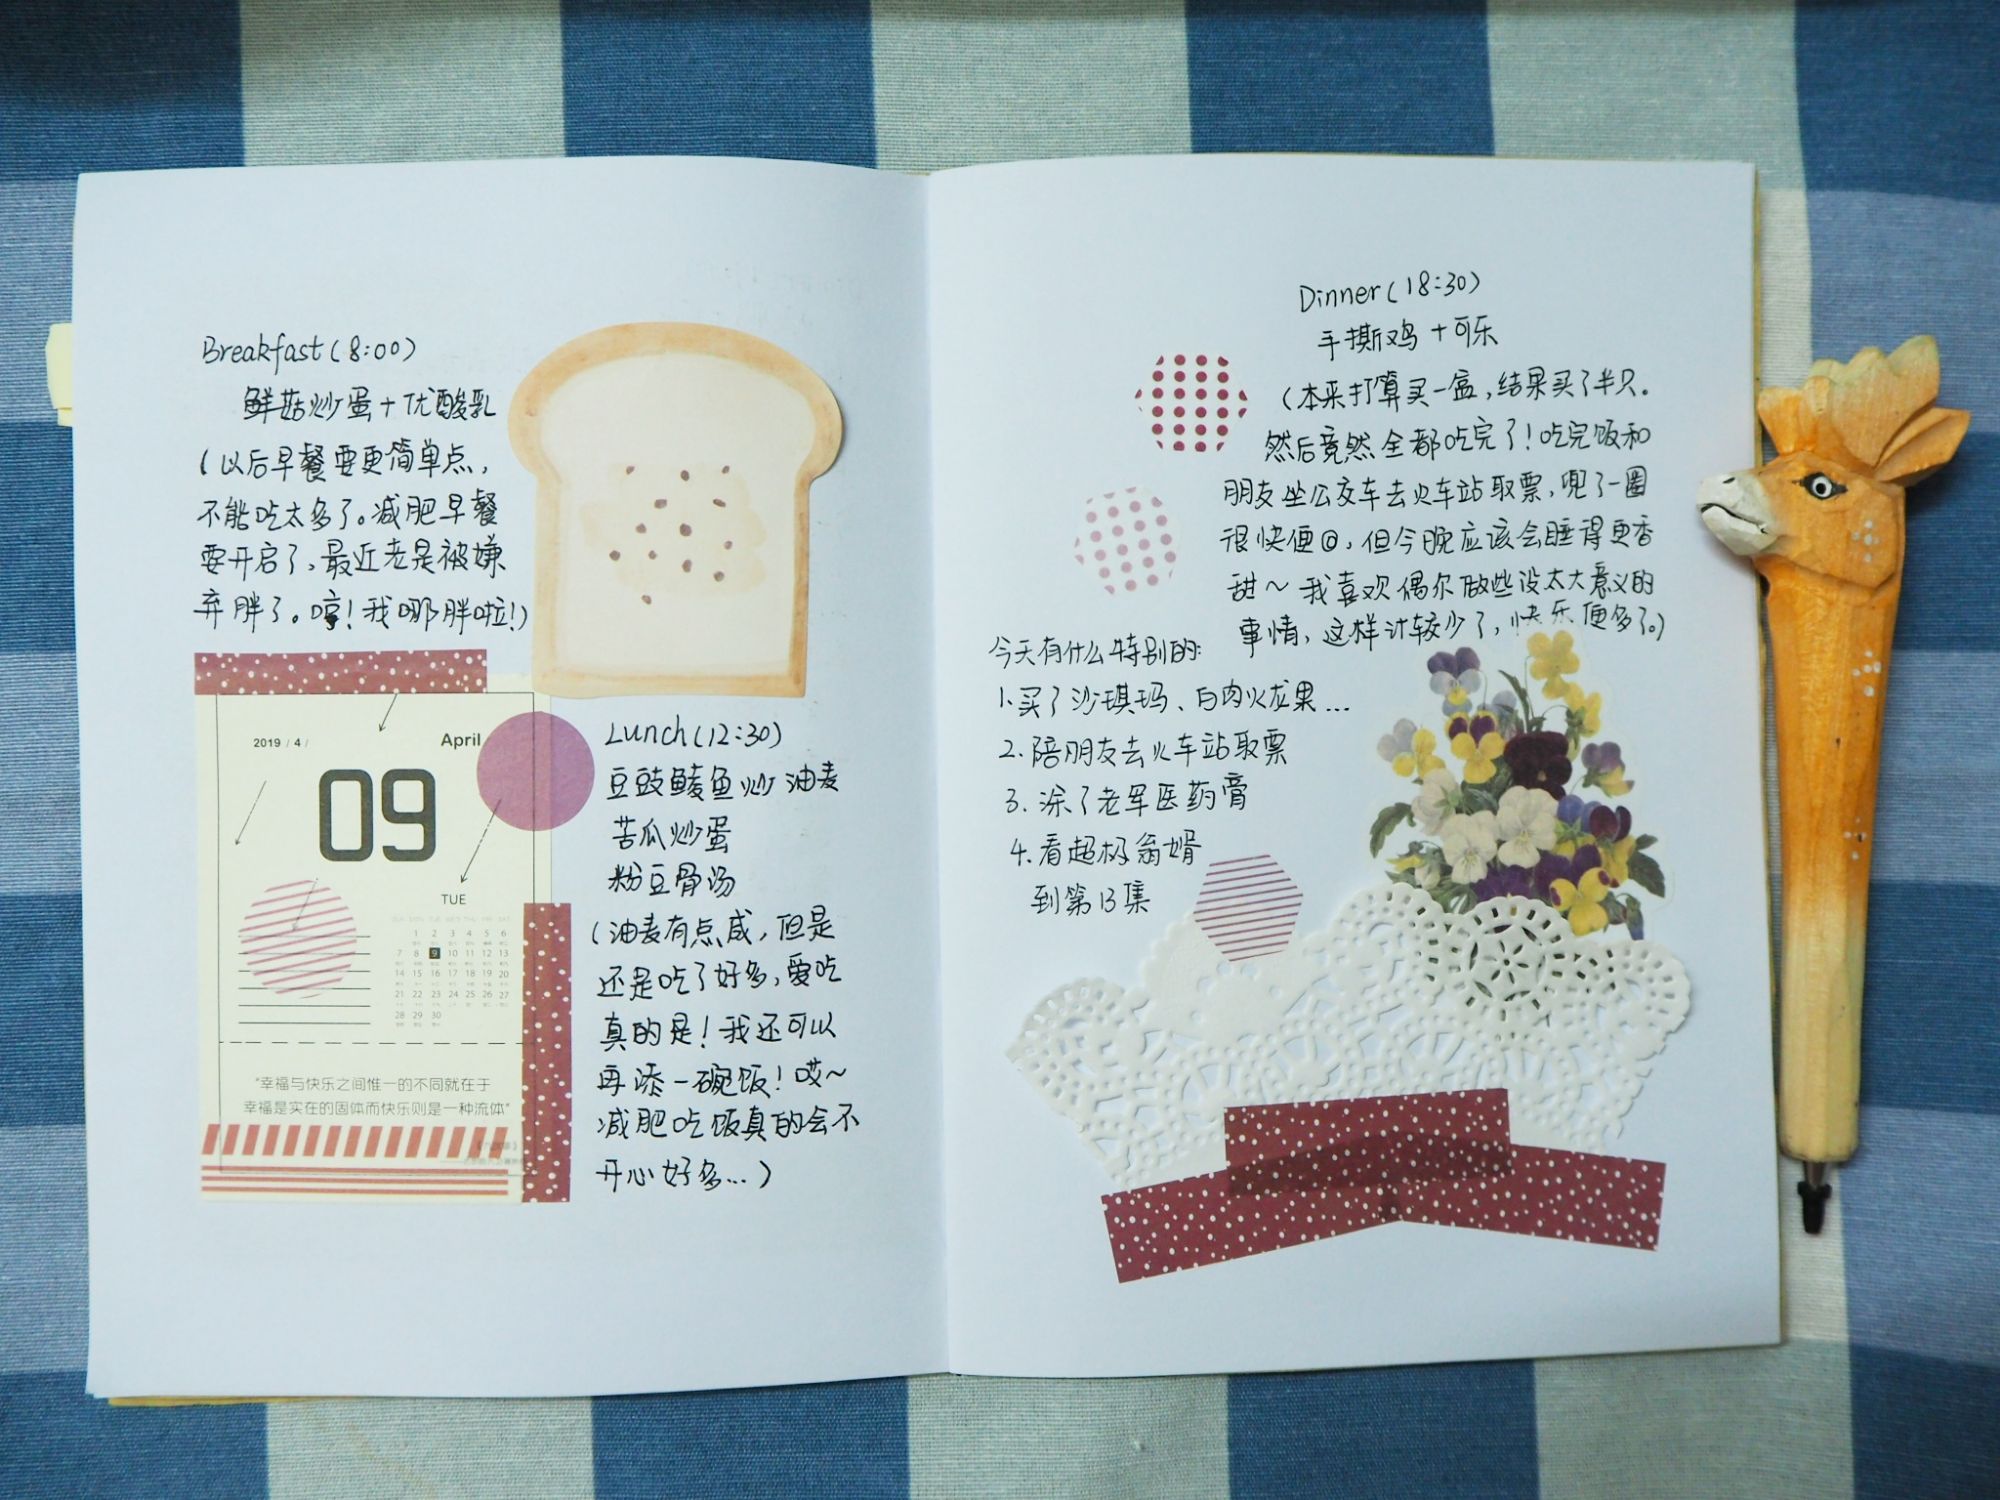 Breakfast(8:00)
鲜菇炒蛋+优酸乳
(以后早餐要更简单点,
不能吃太多了。减肥早餐
要开启了,最近老是被嫌
弃胖了。哼!我哪胖啦!)
2019 / 4 /
April
09
TUE
SUN MON TUE WED THU FRI SAT
1 2 3 4 5 6
7 8 9 10 11 12 13
14 15 16 17 18 19 20
21 22 23 24 25 26 27
28 29 30
"幸福与快乐之间惟一的不同就在于
幸福是实在的固体而快乐则是一种流体"
Lunch(12:30)
豆豉鲮鱼炒油麦
苦瓜炒蛋
粉豆骨汤
(油麦有点咸,但是
还是吃了好多,爱吃
真的是!我还可以
再添一碗饭!哎~
减肥吃饭真的会不
开心好多...)
Dinner(18:30)
手撕鸡+可乐
(本来打算买一盒,结果买了半只。
然后竟然全都吃完了!吃完饭和
朋友坐公交车去火车站取票,兜了一圈
很快便回,但今晚应该会睡得更香
甜~我喜欢偶尔做些没太大意义的
事情,这样计较少了,快乐便多了。)
今天有什么特别的:
1.买了沙琪玛、白肉火龙果...
2.陪朋友去火车站取票
3.涂了老军医药膏
4.看超极翁婿
到第13集